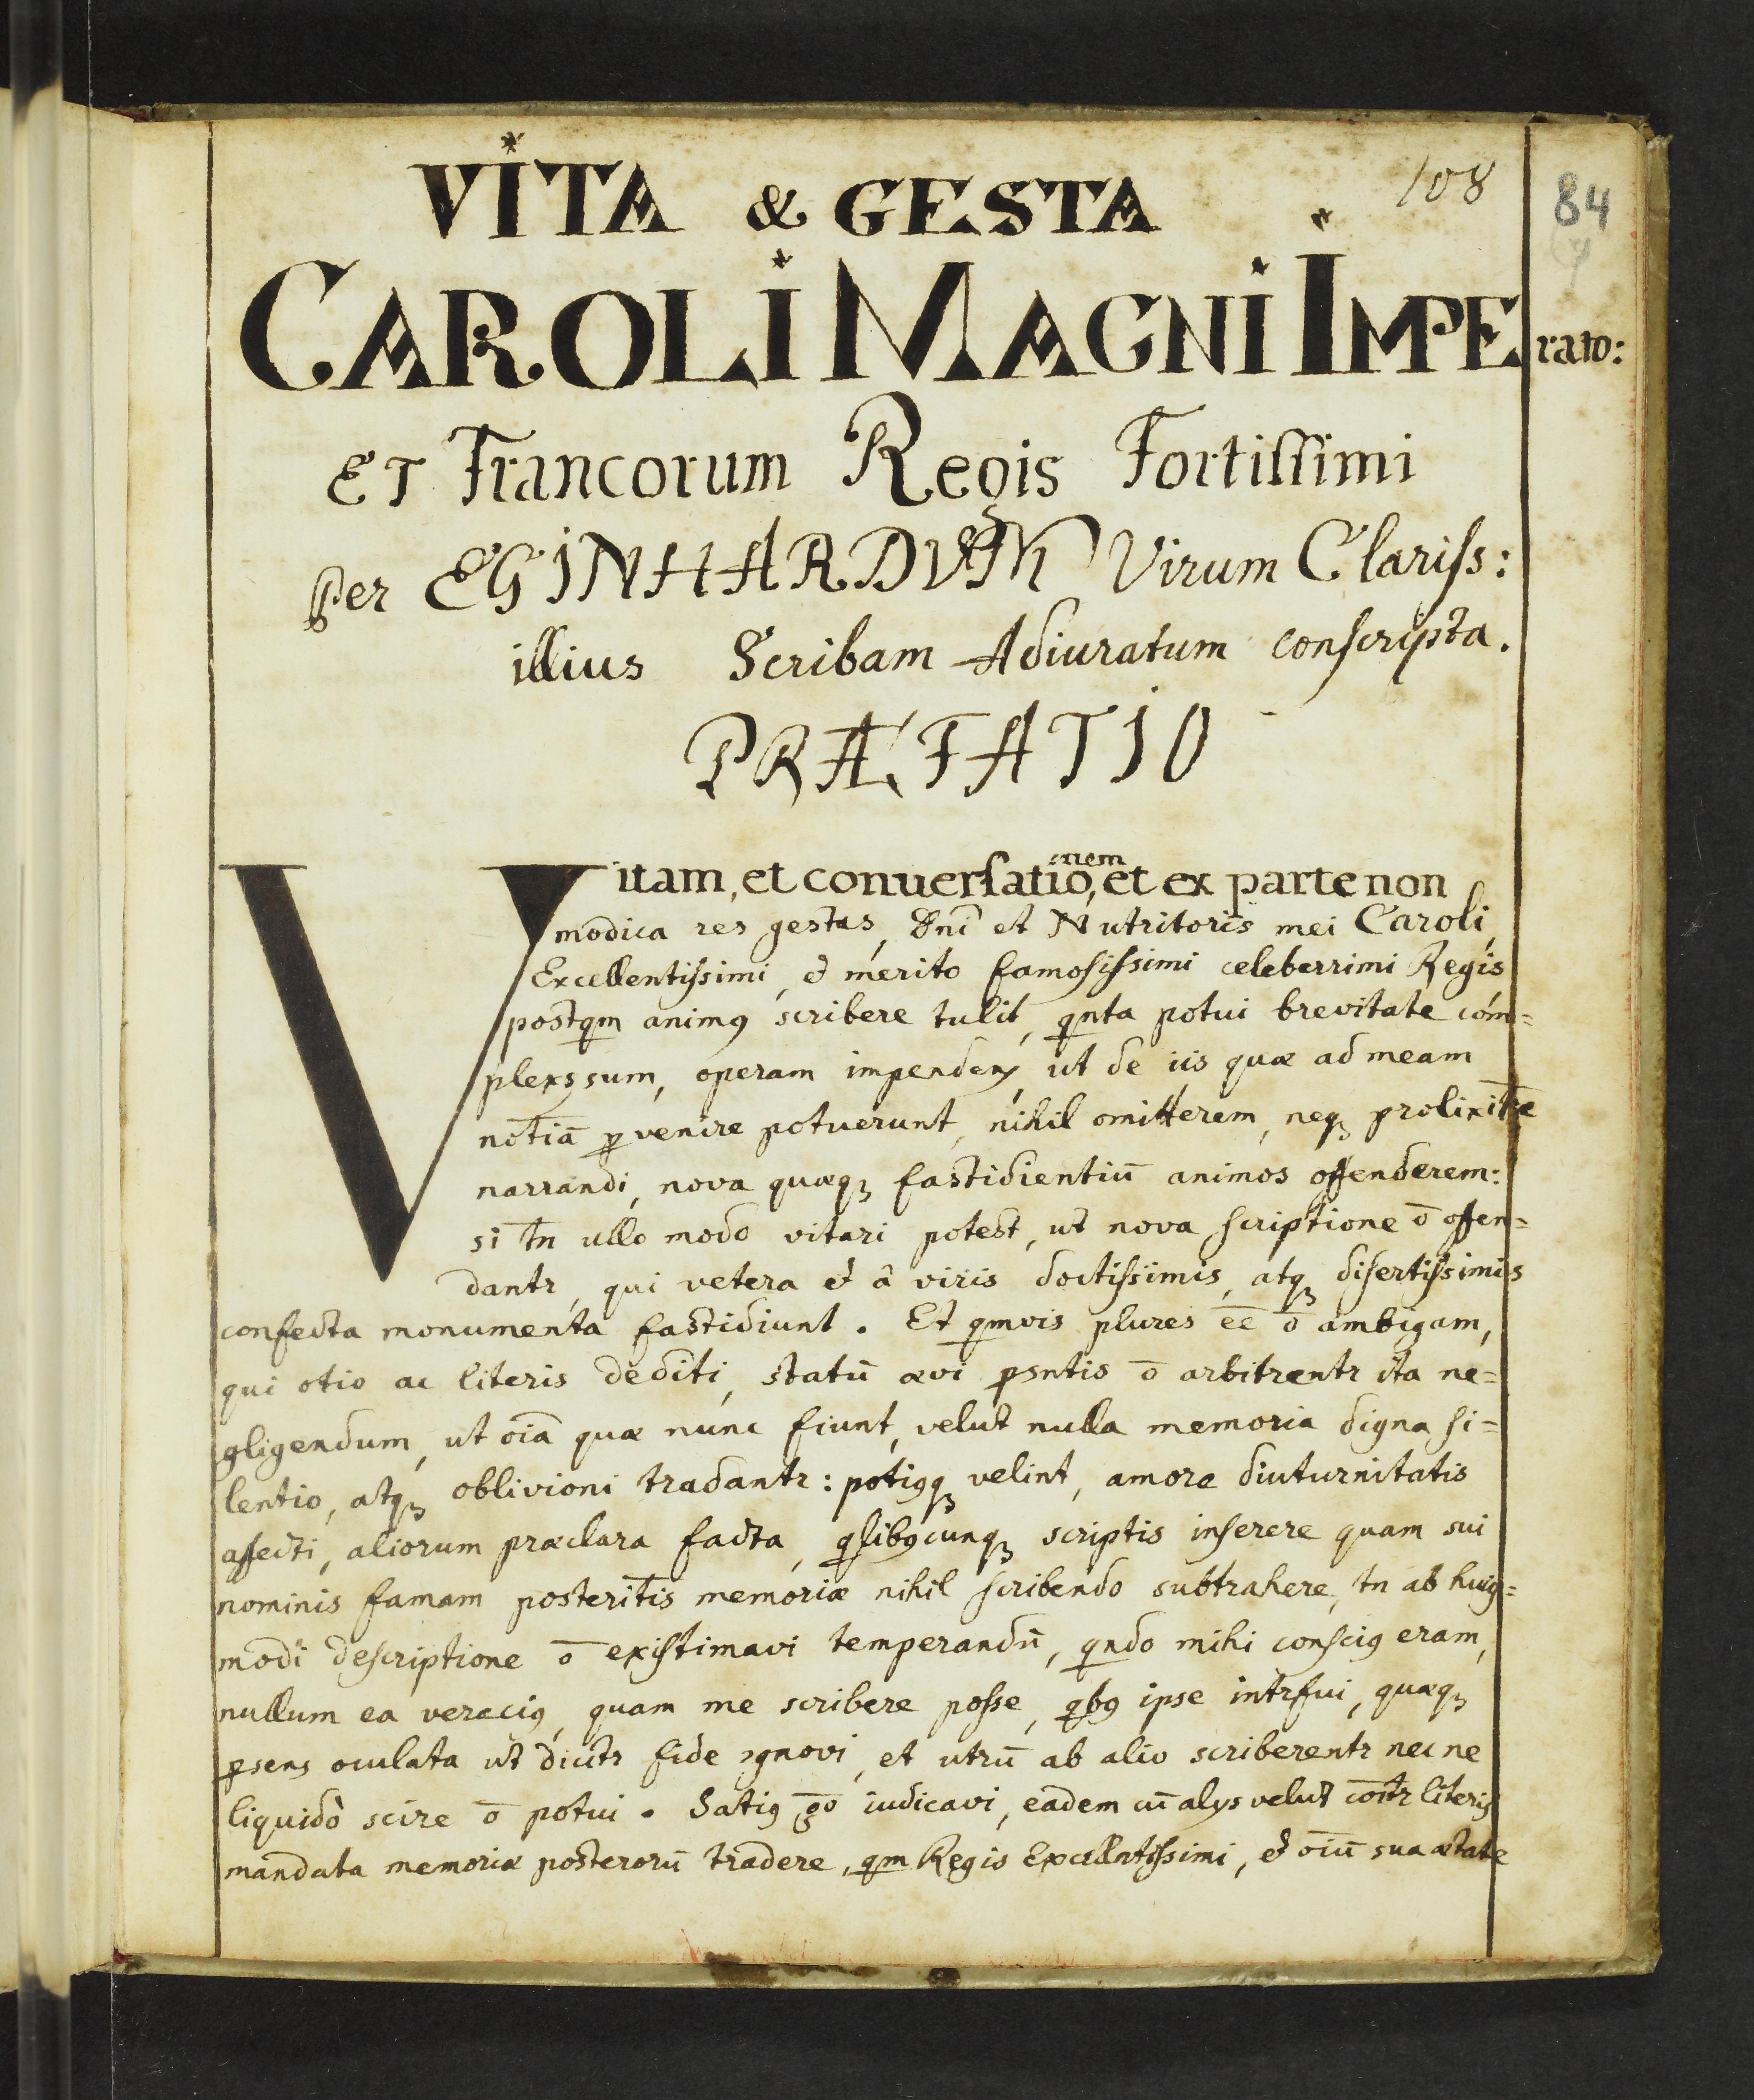 108
84
VITA & GESTA
CAROLI MAGNI IMPErato:
ET Francorum Regis Fortissimi
Per EGINHARDVM Virum Clariss:
illius Scribam Adiuratum conscripta.
PRÆFATIO
Vitam, et conuersatiōnem, et ex parte non
modica res gestas, Dnī et Nutritoris mei Caroli,
Excellentissimi, & merito famosissimi celeberrimi Regis
postqm animꝰ scribere tulit, qnta potui brevitate com=
plexꝰ sum, operam impendens, ut de iis quæ ad meam
notiā ꝑvenire potuerunt, nihil omitterem, neqꝫ prolixitīe
narrandi, nova quæqꝫ fastidientiū animos offenderem:
si tn̄ ullo modo vitari potest, ut nova scriptione ō offen=
dantr, qui vetera & â viris doctissimis, atqꝫ disertissimis
confecta monumenta fastidiunt. Et qmvis plures ēē ō ambigam,
qui otio ac literis dediti, statū ævi p̄sntis ō arbitrentr ita ne=
gligendum, ut oīa quæ nunc fiunt, velut nulla memoria digna si=
lentio, atqꝫ oblivioni tradantr: potiꝰqꝫ velint, amore diuturnitatis
affecti, aliorum præclara facta, qlibꝰcunqꝫ scriptis inserere quam sui
nominis famam posteritīs memoriæ nihil scribendo subtrahere, tn ab huiꝰ=
modi descriptione ō existimavi temperandū, qndo mihi consciꝰ eram,
nullum ea veraciꝰ, quam me scribere posse, qbꝰ ipse intrfui, quæqꝫ
p̄sens oculata ut dicitr fide ꝯgnovi, et utrū ab alio scriberentr nec ne
liquidò scire ō potui. Satiꝰ g̅o iudicavi, eadem cū alys velut cōītr literis
mandata memoriæ posterorū tradere, qm Regis Excellntissimi, & oīū sua ætate